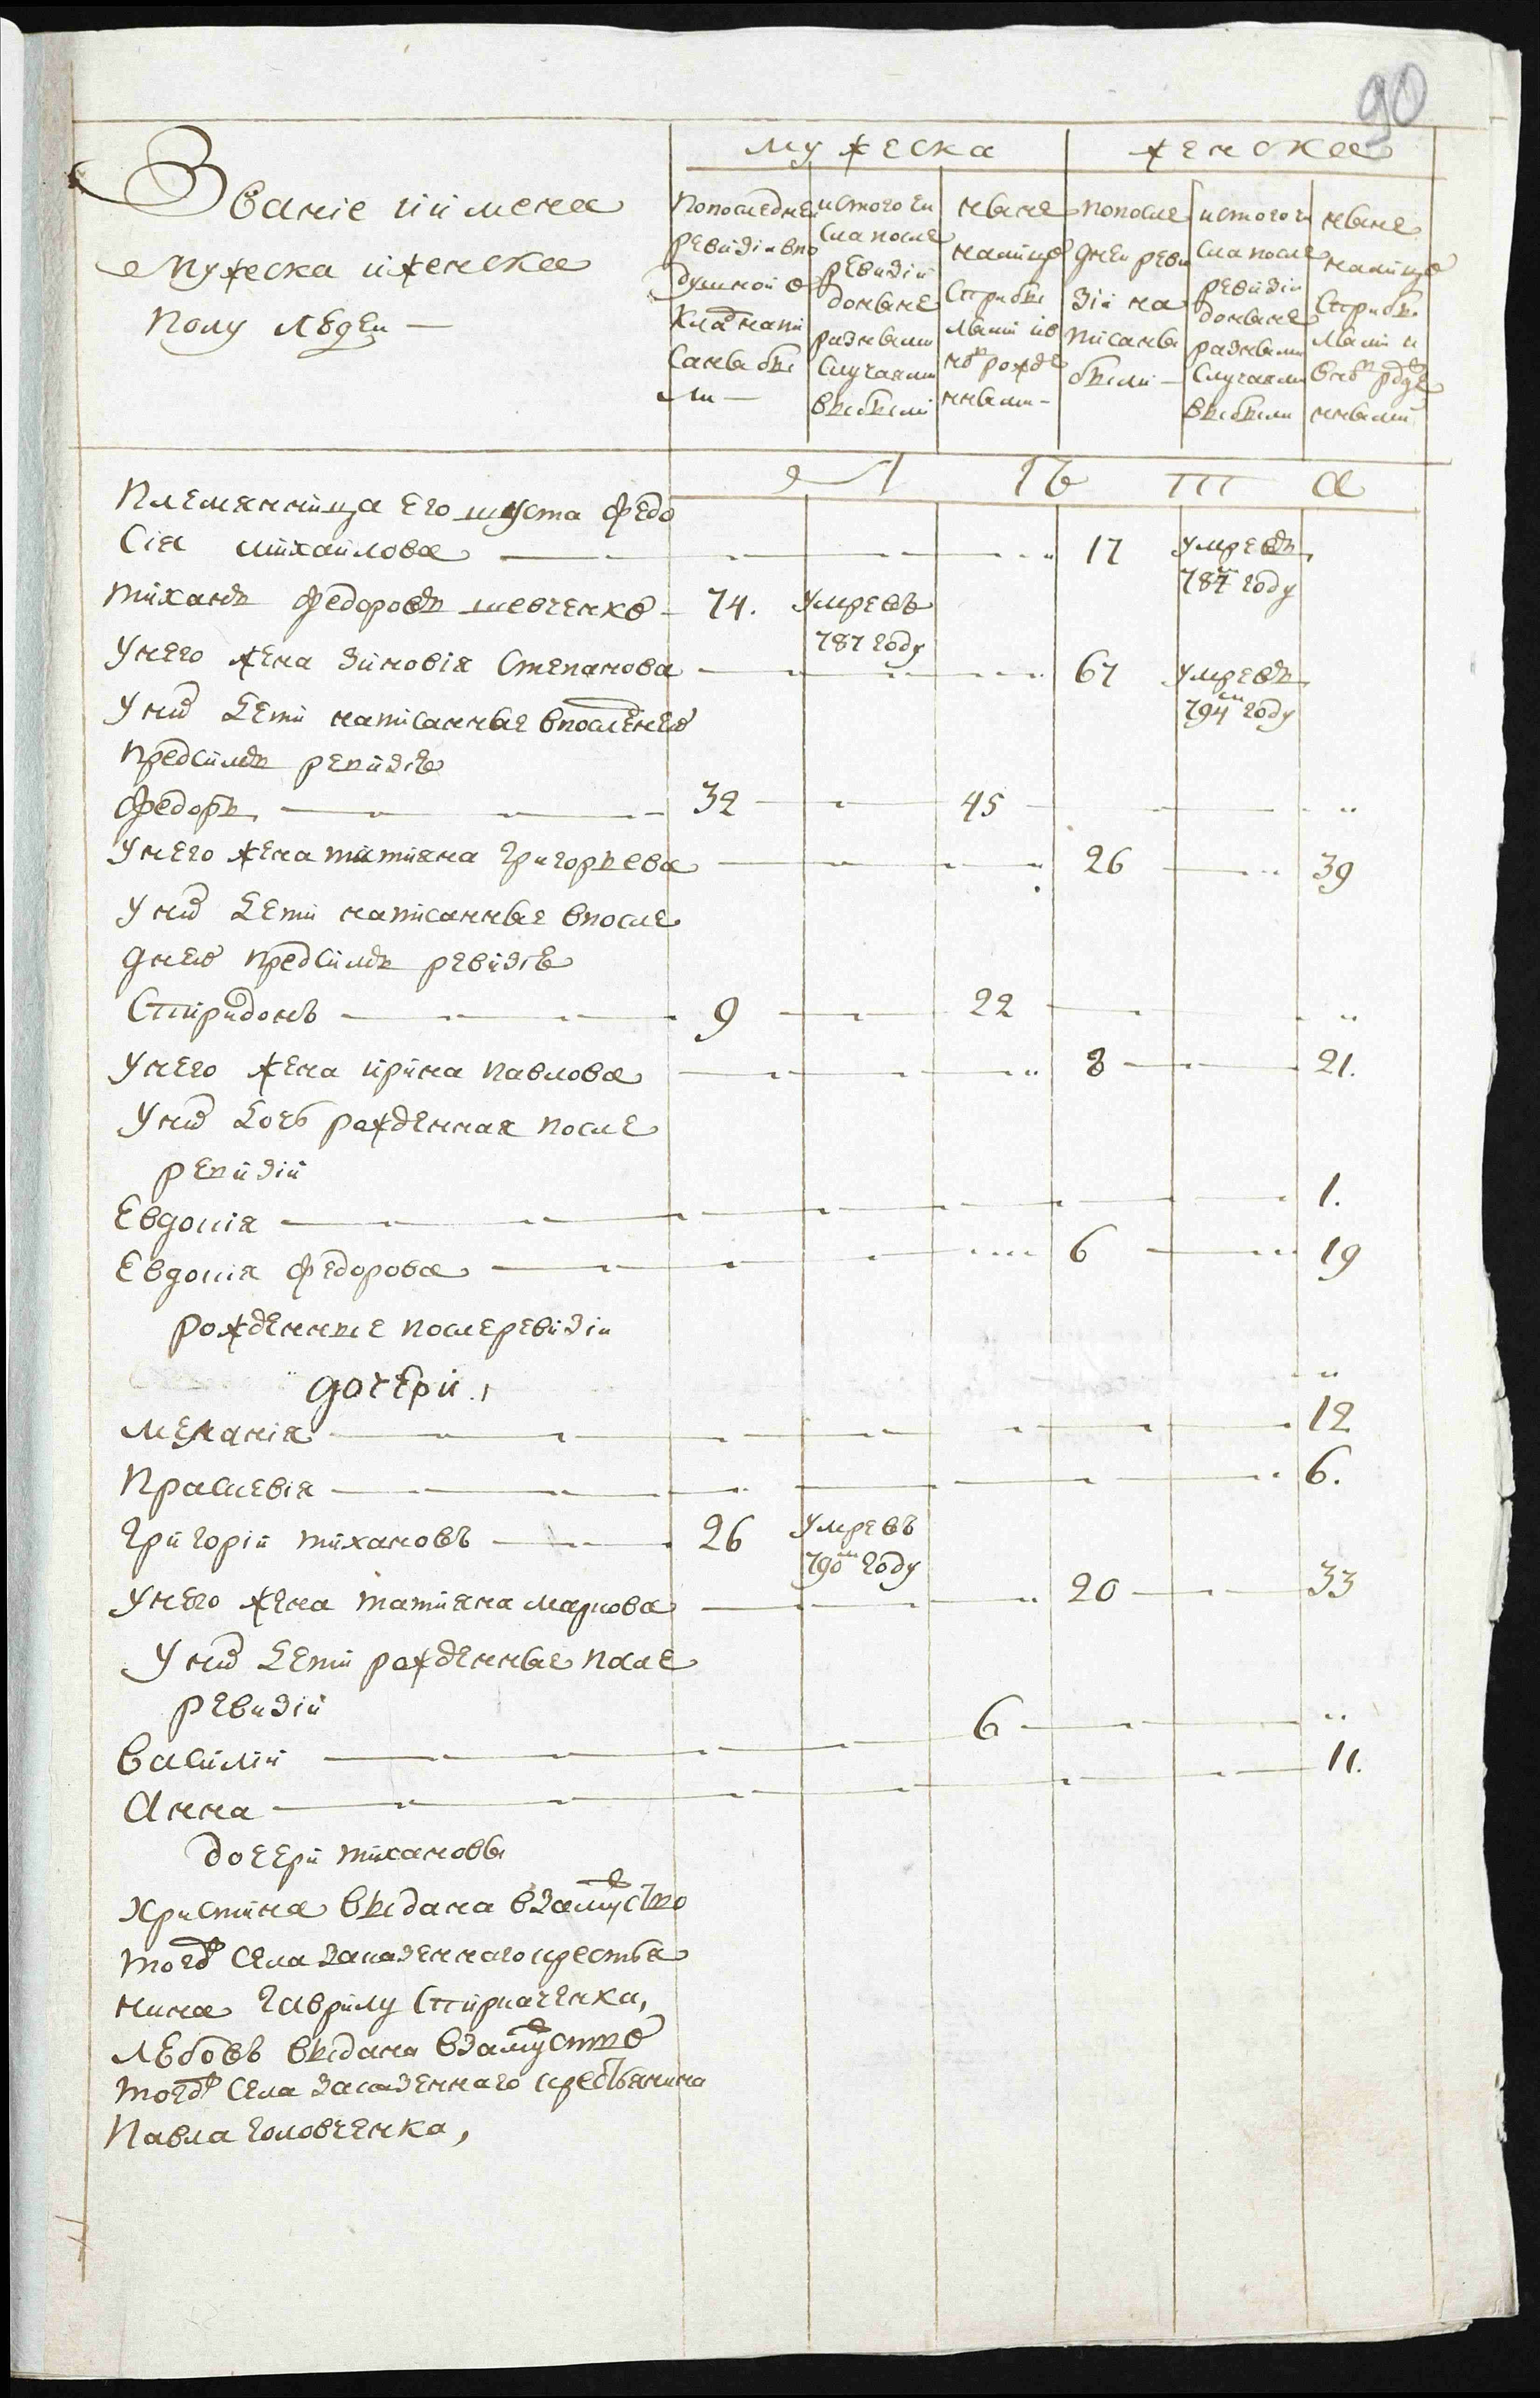 90
Званіе ий мена
мужеска иженска
полу людеи —
мужеска
женска
попоследнеи
ревизіи впо
душной о
кладнапи
саны бы
ли —
истого чи
сла после
ревизіи
доныне
разными
случаями
выбыли
ныне
налицо
сприбы
лыми ив
новъ рожде
нными —
попосле
днеи реви
зіи на
писаны
были —
истого чи
сла после
ревизіи
доныне
разными
случаями
выбыли
ныне
налицо
сприбы
лыми и
вновъ рожде
нными
Л ѣ т а
племянница его шуста федо
сія михайлова 17 умре въ
787 году
тиханъ федоровъ шевченко 74. умре въ
787 году
унего жена зиновія степанова 67 умре въ
794м году
у них дети написанные впоследнеи
предсимъ ревизіе
федоръ 32 45
унего жена татияна григорьева 26 39
у них дети написанные впосле
днеи предсимъ ревизіе
Спиридонъ 9 22
унего жена ирина павлова 8 21.
у них дочь рожденная после
ревизіи
Евдокія 1.
Евдокія федорова 6 19
рожденные послеревизіи
дочери
меланія 12
праскевія 6.
григорій тихановъ 26 умре въ
790м году
унего жена татияна маркова 20 33
у них дети рожденные после
ревизіи
василій 6
Анна 11.
дочери тихановы
христина выдана взамуство
тогожъ села заказенного крестья
нина гаврилу
любовъ выдана взамуство
тогожъ села заказенного крестьянина
Павла головченка,